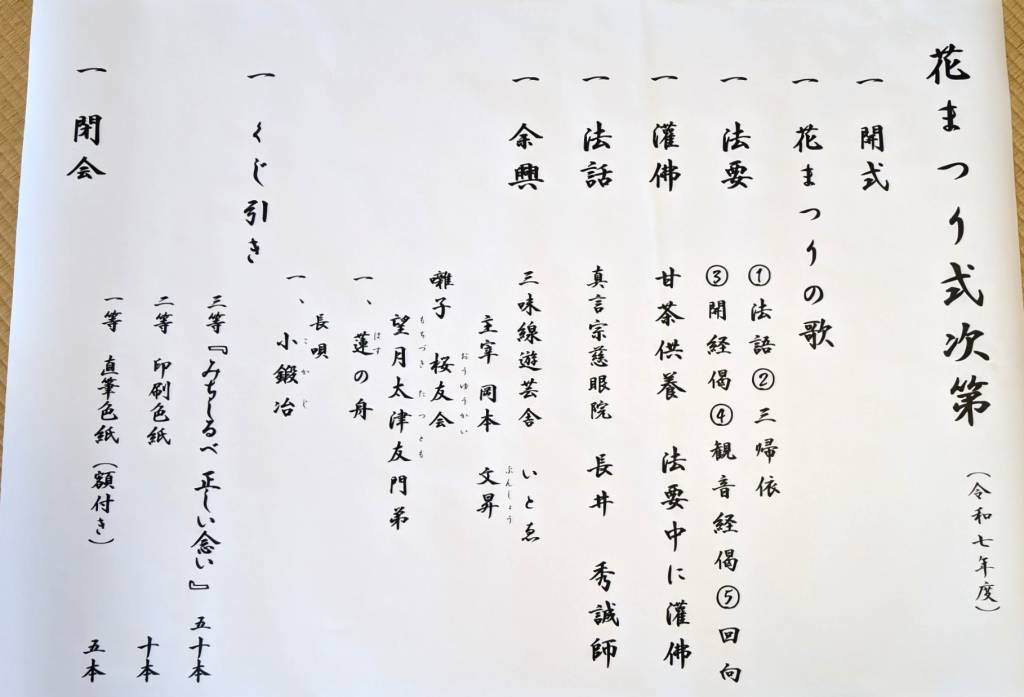 花まつり式次第（令和七年度）
一 開式
一 花まつりの歌
一 法要 ①法語②三帰依
③開経偈④観音経偈⑤回向
一 灌佛 甘茶供養 法要中に灌佛
一 法話 真言宗慈眼院 長井 秀誠師
一 余興 三味線遊芸舎 いとゑ
主宰 岡本 文昇
ぶんしょう
囃子 桜友会
おうゆうかい
望月太津友門弟
もちづきたつとも
一、蓮の舟
はす
長唄
一、小鍛冶
こかじ
一 くじ引き
三等『みちしるべ 正しい念い』 五十本
二等 印刷色紙 十本
一等 直筆色紙（額付き） 五本
一 閉会